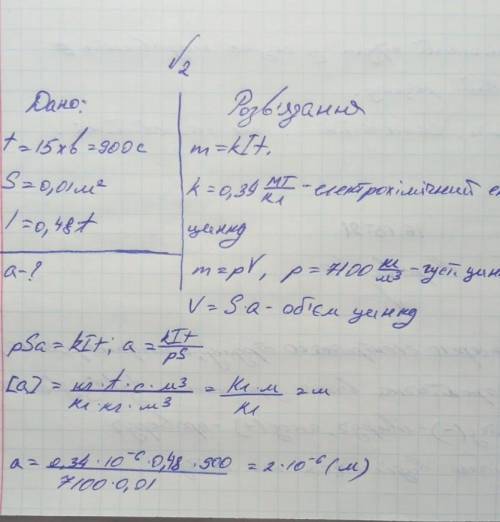 √2
Дано:
t = 15 хв = 900 с
S = 0,01 м²
I = 0,48 t
a - ?
Розв'язання
m = kIt,
k = 0,34 мг/Кл - електрохімічний ек
цинку
m = ρV, ρ = 7100 кг/м³ - густ. цин
V = S·a - об'єм цинку
ρSa = kIt; a = kIt/ρS
[a] = кг·t·с·м³/Кл·кг·м³ = Кл·м/Кл = м
a = 0,34·10⁻⁶·0,48·900/7100·0,01 = 2·10⁻⁶ (м)